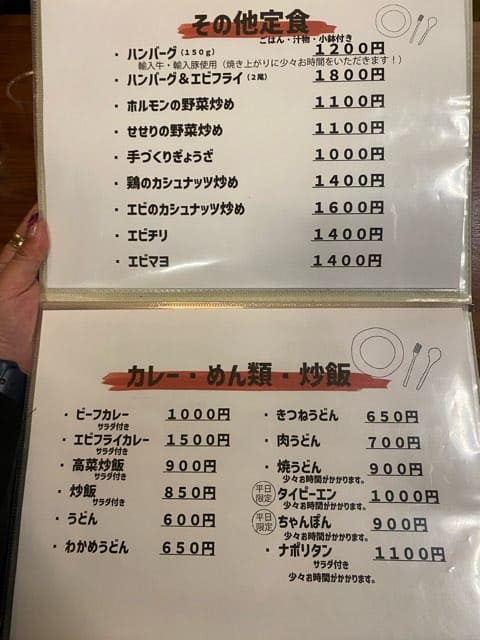 その他定食
ごはん・汁物・小鉢付き
・ハンバーグ(150g) 1200円
輸入牛・輸入豚使用(焼き上がりに少々お時間をいただきます!)
・ハンバーグ&エビフライ(2尾) 1800円
・ホルモンの野菜炒め 1100円
・せせりの野菜炒め 1100円
・手づくりぎょうざ 1000円
・鶏のカシュナッツ炒め 1400円
・エビのカシュナッツ炒め 1600円
・エビチリ 1400円
・エビマヨ 1400円
カレー・めん類・炒飯
・ビーフカレー 1000円
サラダ付き
・エビフライカレー 1500円
サラダ付き
・高菜炒飯 900円
サラダ付き
・炒飯 850円
サラダ付き
・うどん 600円
・わかめうどん 650円
・きつねうどん 650円
・肉うどん 700円
・焼うどん 900円
少々お時間がかかります。
平日限定 タイピーエン 1000円
少々お時間がかかります。
平日限定 ちゃんぽん 900円
少々お時間がかかります。
・ナポリタン 1100円
サラダ付き
少々お時間がかかります。